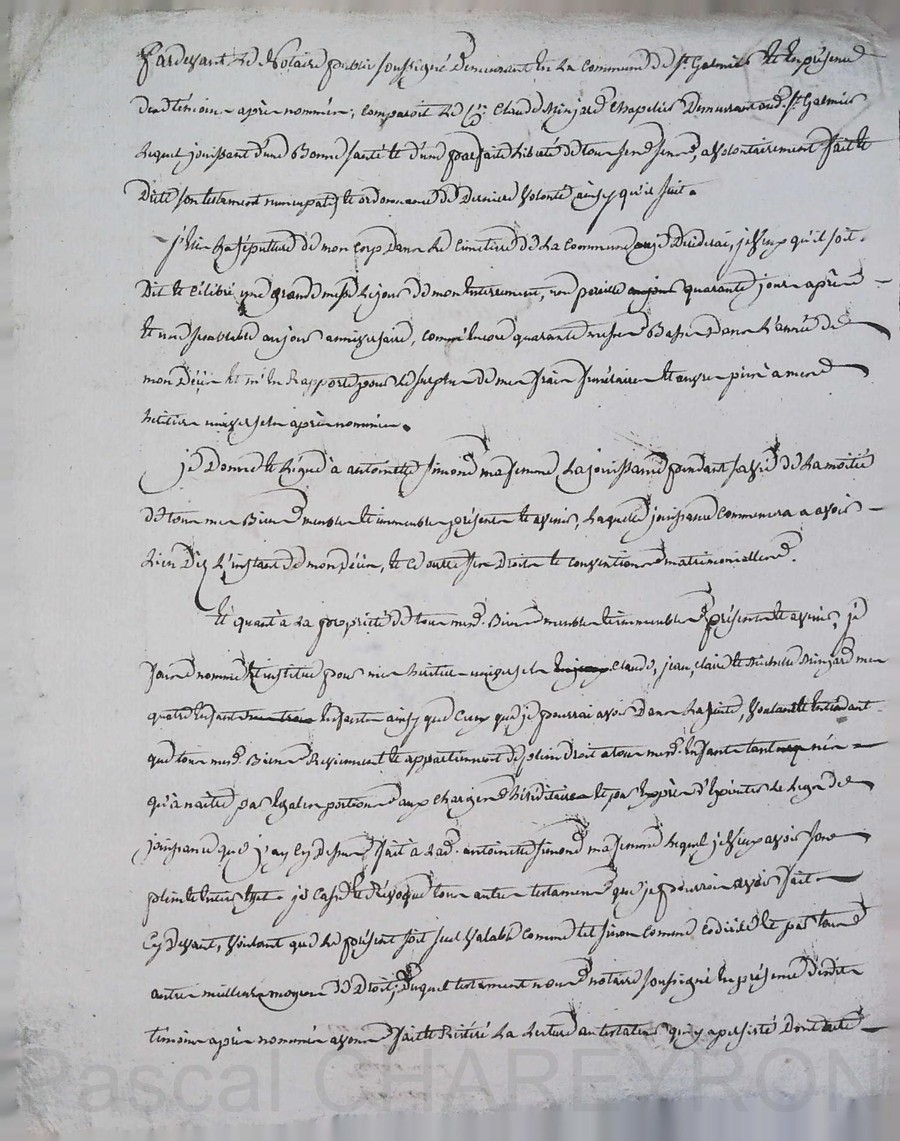 Pardevant le Notaire public soussigné demeurant en la commune de St Galmier et en présence
des témoins après nommés, comparoit le Cn Claude Minjard Chapelier demeurant aud. St Galmier
lequel jouissant d'une bonne santé et d'une parfaite liberté de tous ses sens, a volontairement fait et
dicté son testament nuncupatif et ordonnance de derniere volonté ainsy qu'il suit.
J'élis la sépulture de mon corp dans le cimetiere de la commune ou je décéderai, je veux qu'il soit
dit et célébré une grande messe le jour de mon enterrement, une pareille quarante jours après
et une semblable au jour anniversaire, comme encore quarante messes basses dans l'année de
mon décès et m'en rapporte pour le surplus de mes frais funéraires et œuvres pies à mes
héritiers universels après nommés.
je donne et lègue à antoinette Simond ma femme la jouissance pendant sa vie de la moitié
de tous mes biens meubles et immeubles présents et avenir, laquelle jouissance commencera a avoir
lieu dez l'instant de mon décès, et ce outre ses droits et conventions matrimonielles.
Et quant à la propriété de tous mes biens meubles et immeubles présents et avenir, je
fais nomme et institue pour mes héritiers universels Claude, jean, claire et Michelle Minjard mes
quatre enfants ainsy que ceux que je pourrai avoir dans la suite, voulant et entendant
que tous mes biens reviennent et appartiennent de plein droit a tous mes enfants tant nés
qu'à naitre par egales portions aux charges héréditaires et par exprès d'exécuter le legs de
jouissance que j'ay cy dessus fait à lad. antoinette Simond ma femme lequel je veux avoir son
plein et entier effet. je casse et révoque tous autres testaments que je pourrois avoir fait
cy devant, voulant que le présent soit seul valable comme tel sinon comme codicile et par tous
autres meilleurs moyens de Droit, duquel testament nous notaire soussigné en présence desdits
témoins après nommés avons fait et réitéré la lecture au testateur qui y a persisté Dont acte
Pascal CHAREYRON